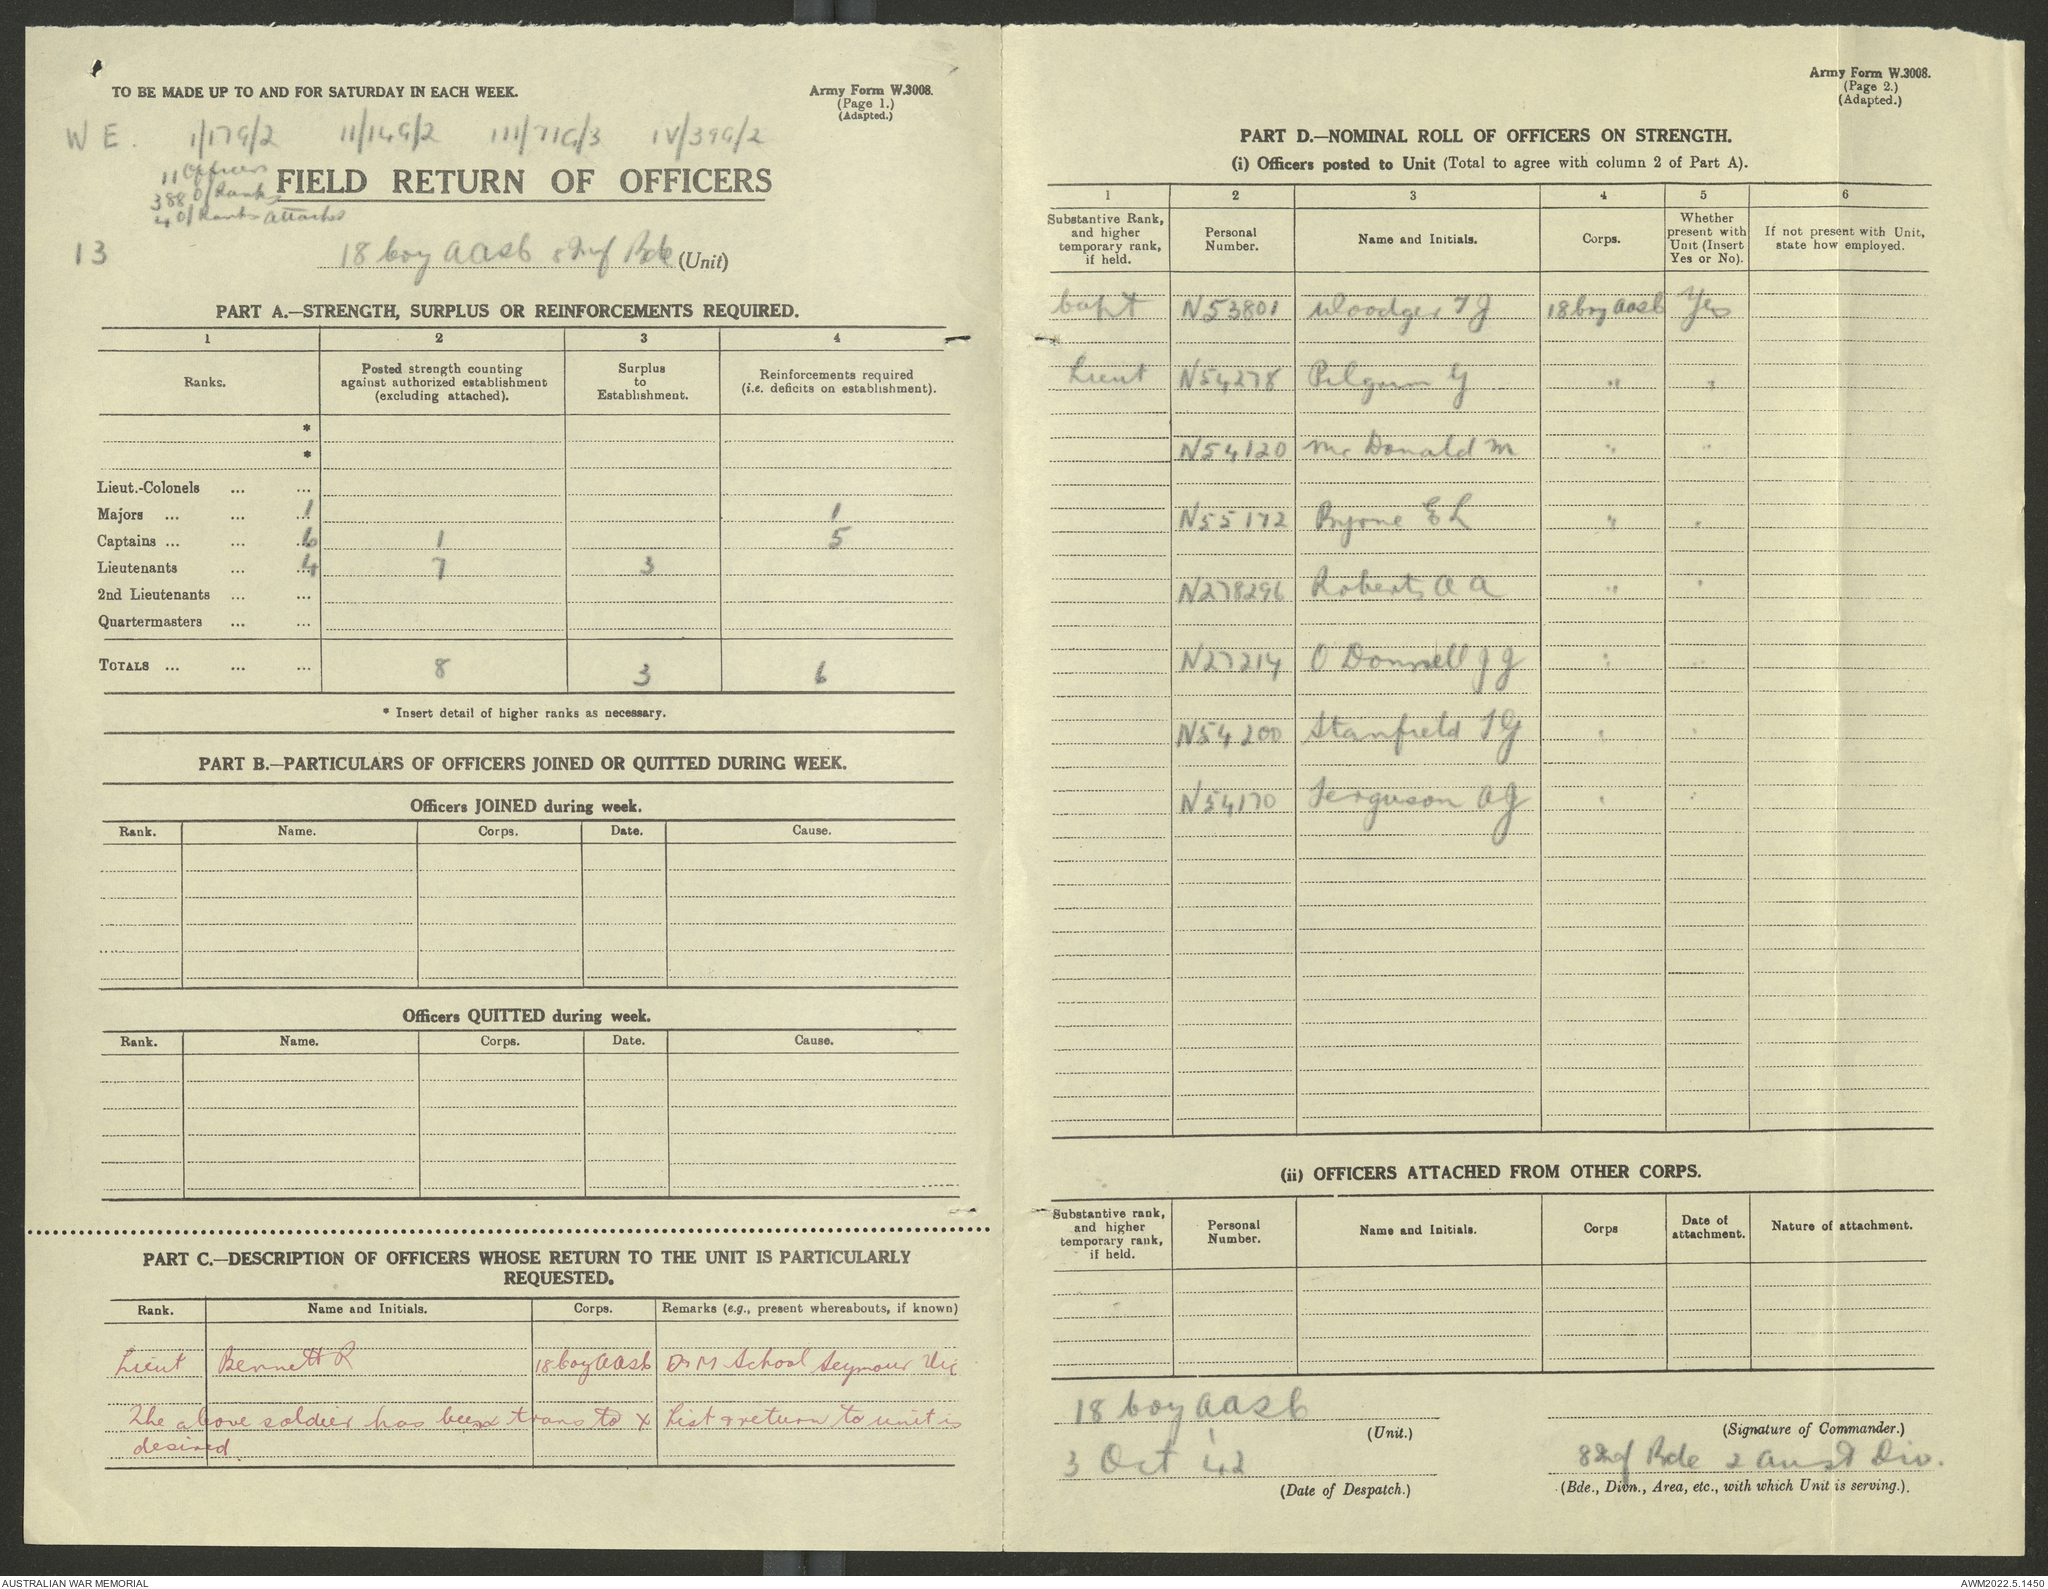 TO BE MADE UP TO AND FOR SATURDAY IN EACH WEEK.
Army Form W.3008.
(Page 1.)
(Adapted.)
W E. 1/17G/2 11/14G/2 111/71G/3 IV/39G/2
11 Officers
388 O/Ranks
4 O/Ranks attached
FIELD RETURN OF OFFICERS
13
18 Coy AASC 8 Inf Bde (Unit)
PART A.—STRENGTH, SURPLUS OR REINFORCEMENTS REQUIRED.
1 2 3 4
Ranks. Posted strength counting against authorized establishment (excluding attached). Surplus to Establishment. Reinforcements required (i.e. deficits on establishment).
*
*
Lieut.-Colonels ... ...
Majors ... ... ... 1 1
Captains ... ... ... 6 1 5
Lieutenants ... ... 4 7 3
2nd Lieutenants ... ...
Quartermasters ... ...
TOTALS ... ... ... 8 3 6
* Insert detail of higher ranks as necessary.
PART B.—PARTICULARS OF OFFICERS JOINED OR QUITTED DURING WEEK.
Officers JOINED during week.
Rank. Name. Corps. Date. Cause.
Officers QUITTED during week.
Rank. Name. Corps. Date. Cause.
PART C.—DESCRIPTION OF OFFICERS WHOSE RETURN TO THE UNIT IS PARTICULARLY
REQUESTED.
Rank. Name and Initials. Corps. Remarks (e.g., present whereabouts, if known)
Lieut Bennett R 18 Coy AASC D & M School Seymour Vic
The above soldier has been trans to X List & return to unit is
desired
Army Form W.3008.
(Page 2.)
(Adapted.)
PART D.—NOMINAL ROLL OF OFFICERS ON STRENGTH.
(i) Officers posted to Unit (Total to agree with column 2 of Part A).
1 2 3 4 5 6
Substantive Rank, and higher temporary rank, if held. Personal Number. Name and Initials. Corps. Whether present with Unit (Insert Yes or No). If not present with Unit, state how employed.
Capt N53801 Woodger T J 18 Coy AASC Yes
Lieut N54278 Pilgrim G " "
N54120 McDonald M " "
N55172 Byrne E L " "
N278296 Roberts A A " "
N27214 O Donnell J J " "
N54200 Stanfield T G " "
N54170 Ferguson A J " "
(ii) OFFICERS ATTACHED FROM OTHER CORPS.
Substantive rank, and higher temporary rank, if held. Personal Number. Name and Initials. Corps Date of attachment. Nature of attachment.
18 Coy AASC
(Unit.)
(Signature of Commander.)
3 Oct 42
8 Inf Bde 2 Aust Div.
(Date of Despatch.)
(Bde., Divn., Area, etc., with which Unit is serving.).
AUSTRALIAN WAR MEMORIAL
AWM2022.5.1450